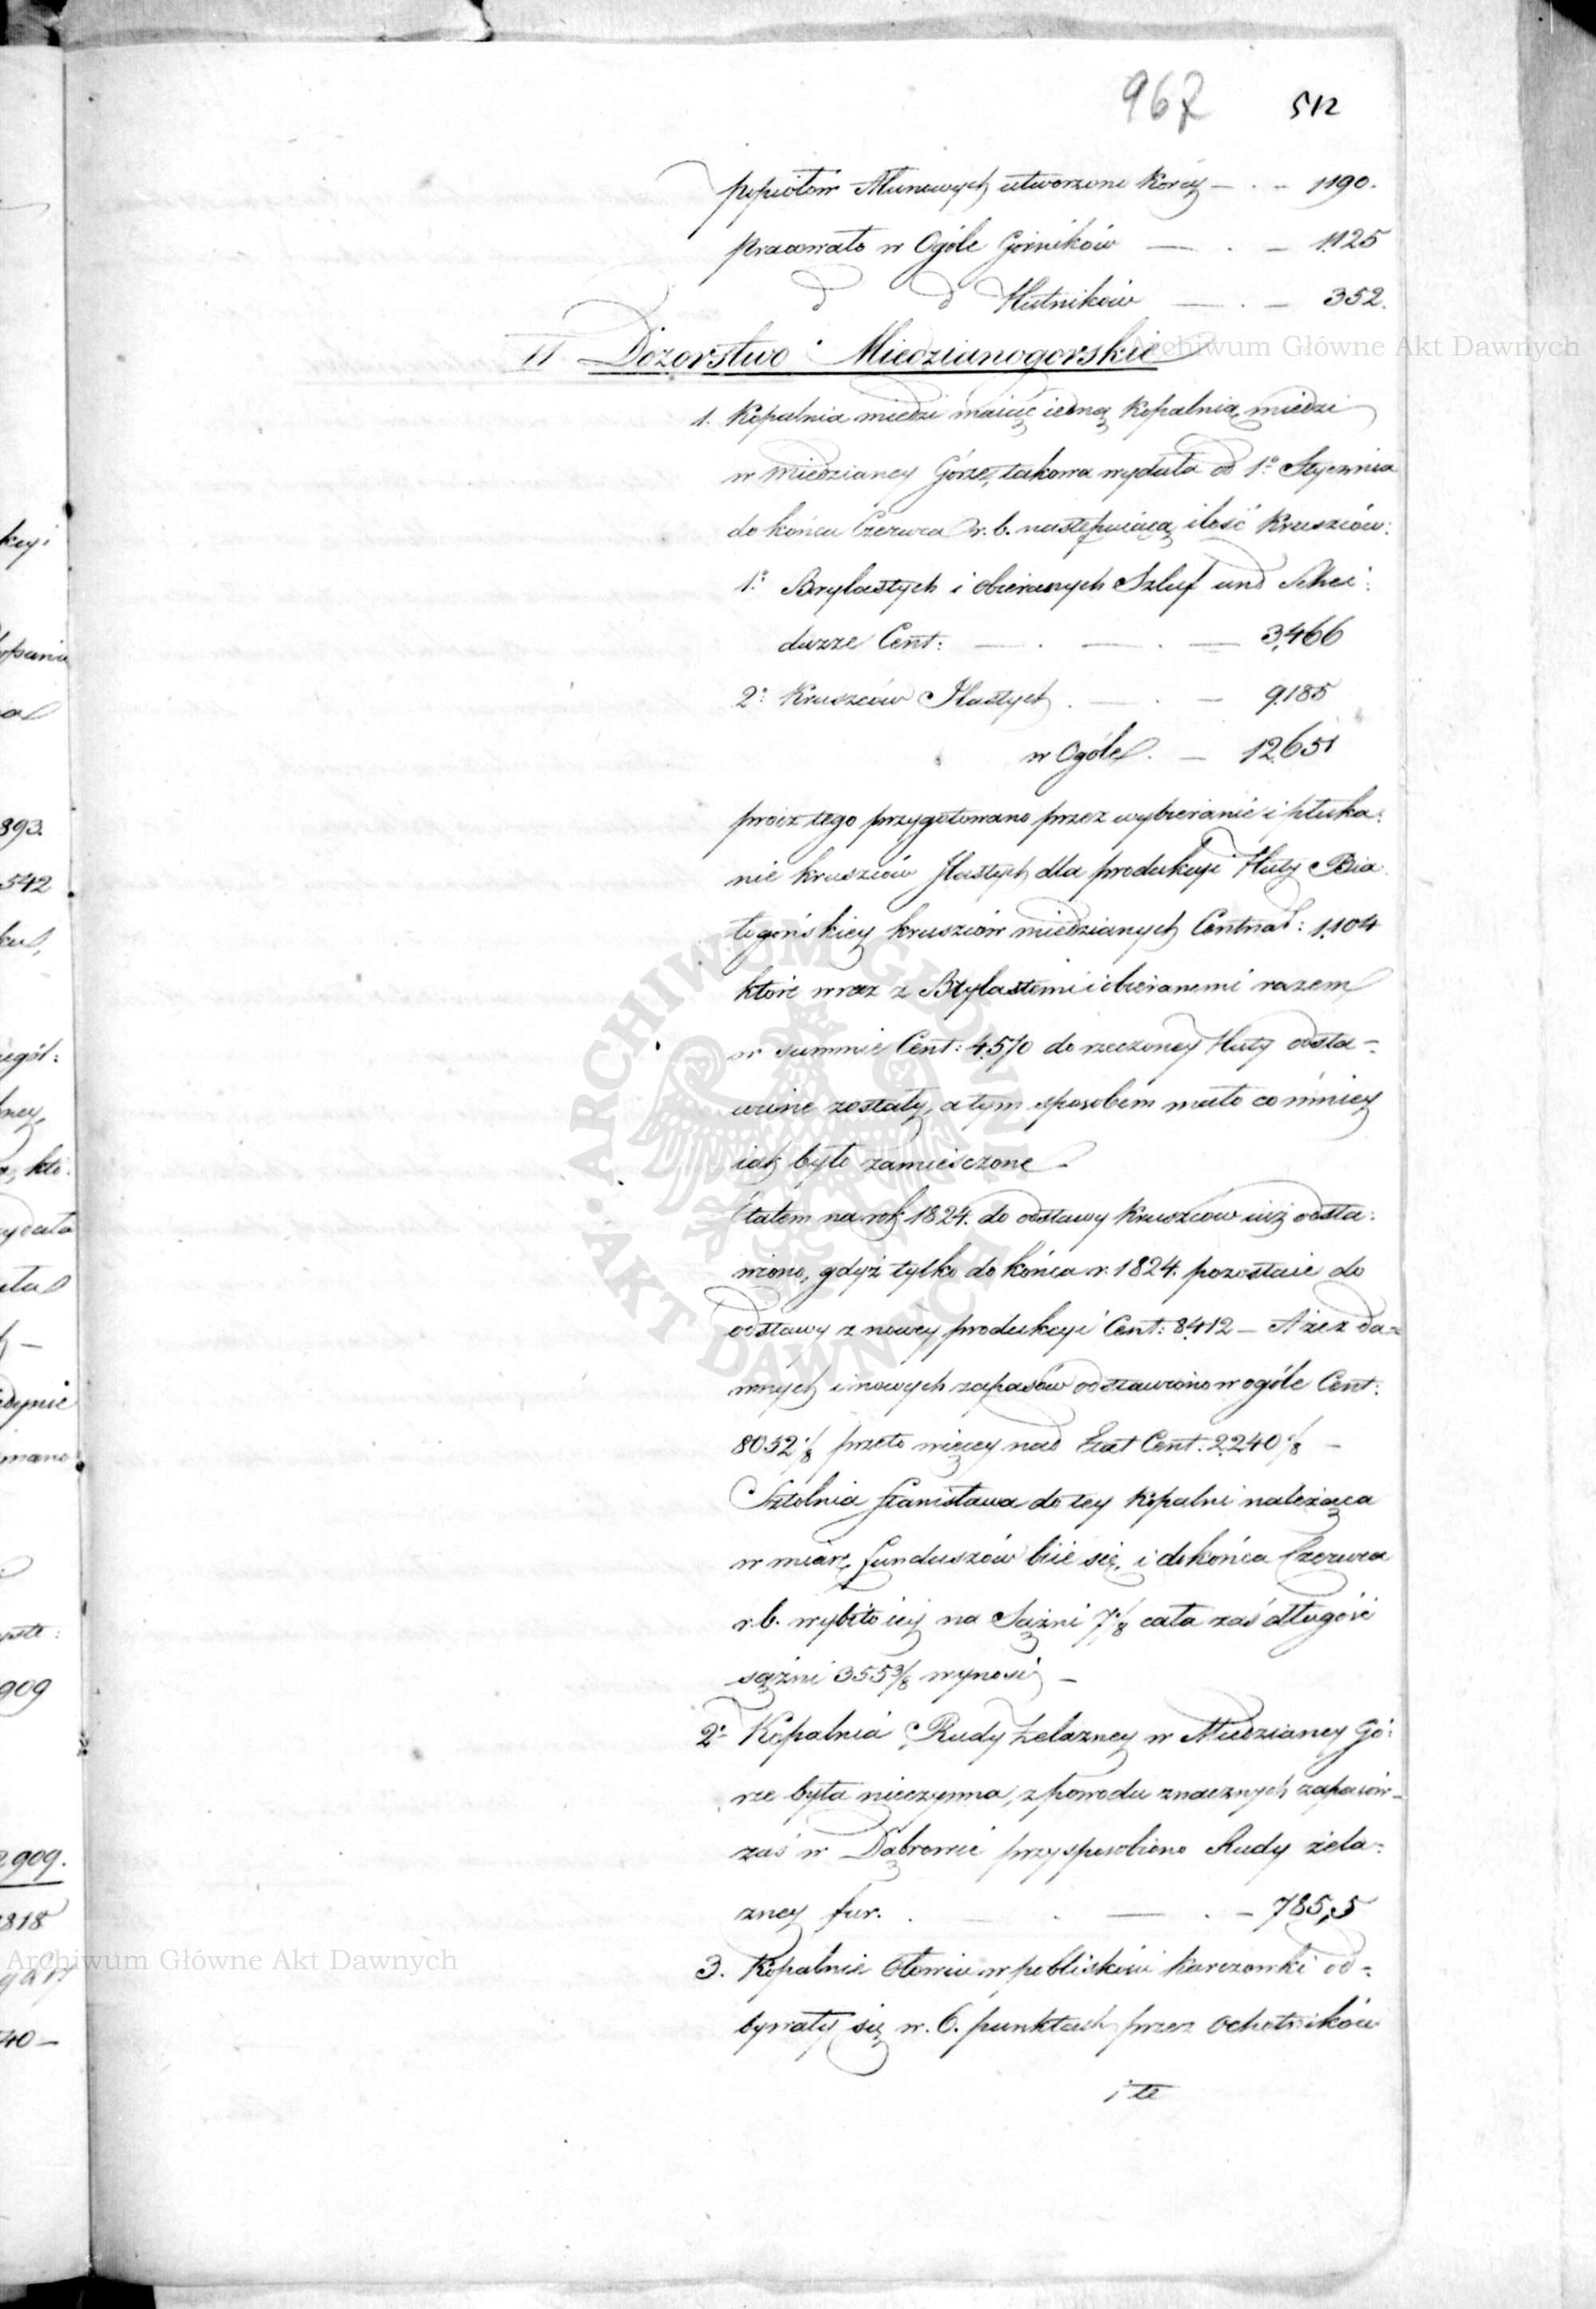 967 512
popiołów Ałunowych utworzono Korcy — . – 1190.
pracowało w Ogóle Górników — . – 1125
d d Hutników — . – 352.
Archiwum Główne Akt Dawnych
II Dozorstwo Miedzianogorskie
1. Kopalnia miedzi maiąc iedną Kopalnią miedzi
w Miedzianey Górze, takowa wydała od 1º Stycznia
do końca Czerwca r. b. następuiącą ilość Kruszców:
1º Bryłastych i obieranych Szluf und Schei:
darze Cent: — . — . — 3,466
2º Kruszców Ilastych . — . — 9185
w Ogóle . — 12651
prócz tego przygotowano przez wybieranie i płuka:
nie kruszców Ilastych dla produkcyi Huty Bia
łogońskiey kruszców miedzianych Centnar: 1,104
które wraz z Bryłastemi i obieranemi razem
w summie Cent: 4,570 do rzeczoney Huty odsta –
wione zostały, a tym sposobem mało co mniey
iak było zamieszczone –
Etatem na rok 1824. do odstawy Kruszców iuż odsta:
wiono, gdyż tylko do końca r. 1824. pozostaie do
odstawy z nowey produkcyi Cent: 8,412 — A że z da=
wnych i nowych zapasów odstawiono w ogóle Cent:
8052 1/8 przeto więcey nad Etat Cent. 2,240 1/8 —
Sztolnia Stanisława do tey Kopalni należąca
w miarę funduszów biie się, i do końca Czerwca
r. b. wybito iey na Sążni 7 1/8 cała zaś długość
sążni 355 3/8 wynosi —
2º Kopalnia Rudy żelazney w Miedzianey Gó:
rze była nieczynna, z powodu znacznych zapasów —
zaś w Dąbrowie przysposobiono Rudy żela:
zney fur. . — . — . — 785,5
Archiwum Główne Akt Dawnych
3. Kopalnie Ołowiu w pobliskości Karczowki od=
bywały się w 6. punktach przez Ochotników
i te
ARCHIWUM GŁÓWNE AKT DAWNYCH